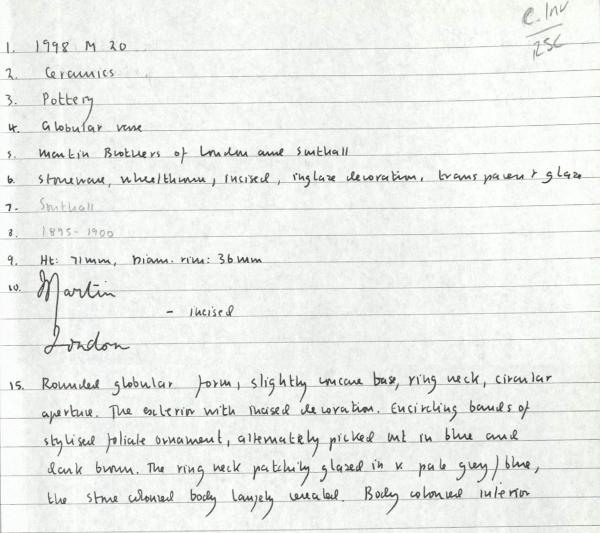 e. Inv
RSC
1. 1998 M 20
2. Ceramics
3. Pottery
4. Globular vase
5. Martin Brothers of London and Southall
6. Stoneware, wheelthrown, incised, inglaze decoration, transparent glaze
7. Southall
8. 1895-1900
9. Ht: 71mm, Diam. rim: 36mm
10. Martin
- incised
London
15. Rounded globular form, slightly concave base, ring neck, circular
aperture. The exterior with incised decoration. Encircling bands of
stylised foliate ornament, alternately picked out in blue and
dark brown. The ring neck patchily glazed in v. pale grey/blue,
the stone coloured body largely revealed. Body coloured interior